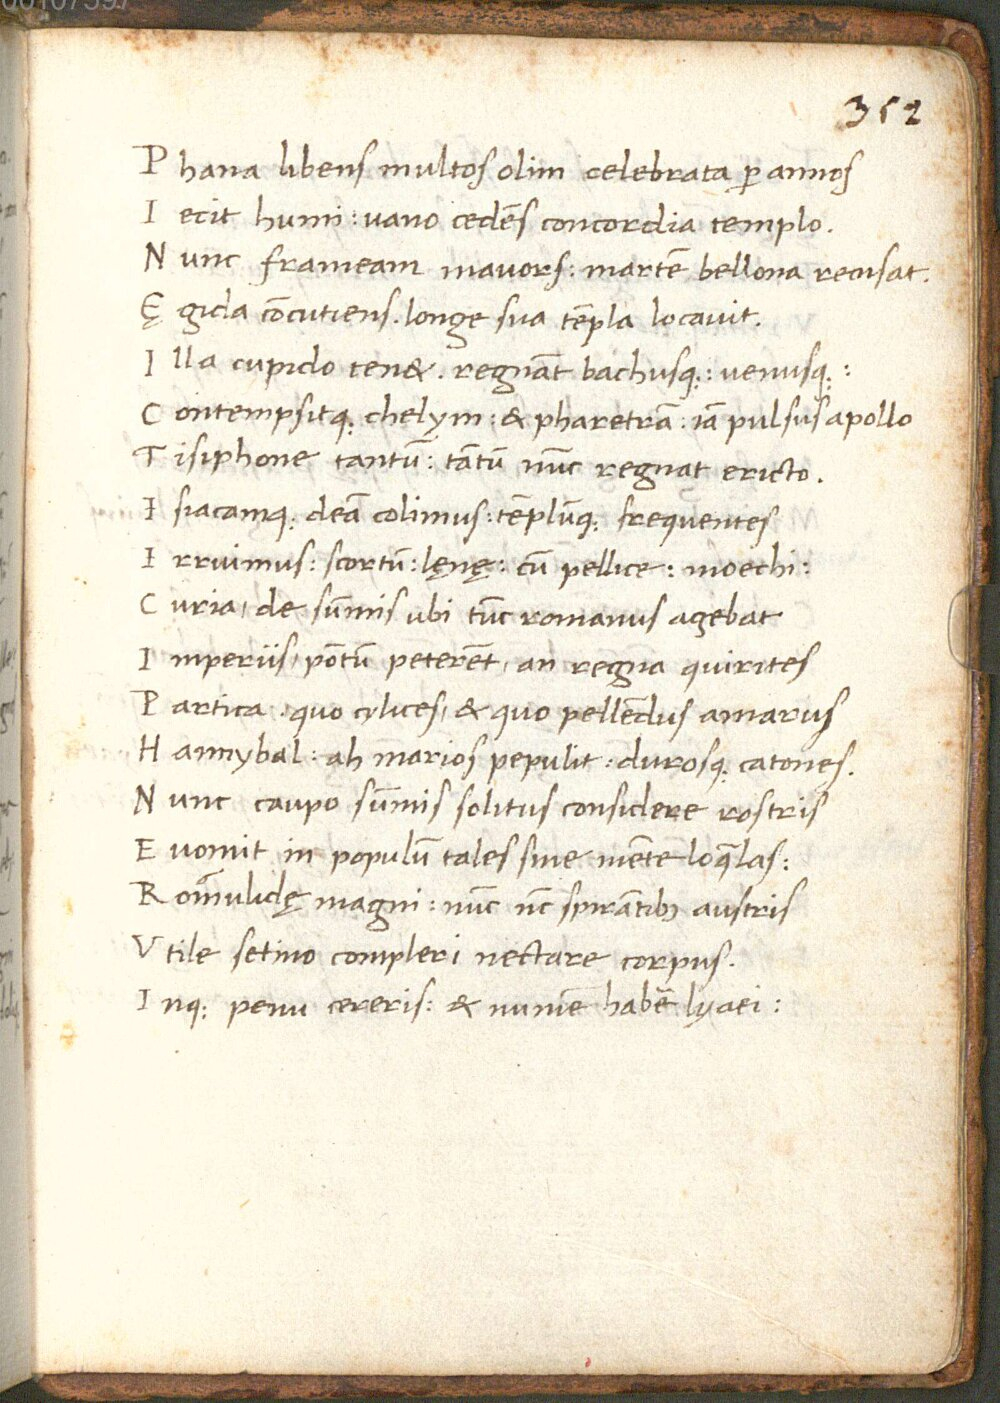 352
Phana libens multos olim celebrata ꝑ annos
Iecit humi : uano cedēs concordia templo.
Nunc frameam mauors : martē bellona recusat.
Ęgida cōcutiens. longe sua tēpla locauit.
Illa cupido ten&. regnāt bachusq; : uenusq; :
Contempsitq; chelym : & pharetrā : iā pulsus apollo
Tisiphone tantū : tātū nūc regnat ericto.
Isiacamq; deā colimus : tēplūq; frequentes
Irruimus : scortū : lęnę : cū pellice : moechi :
Curia, de sūmis ubi tūc romanus agebat
Imperiis, pōtū peterēt, an regna quirites
Partica . quo cylices, & quo pellēdus amarus
Hannybal : ah marios pepulit : durosq; catones.
Nunc caupo sūmis solitus considere rostris
Euomit in populū tales sine mēte loq̄las :
Romulidę magni : nūc nc̄ spirātibꝫ austris
Vtile setino compleri nectare corpus.
Inq; penu cereris : & numē habē lyaei :